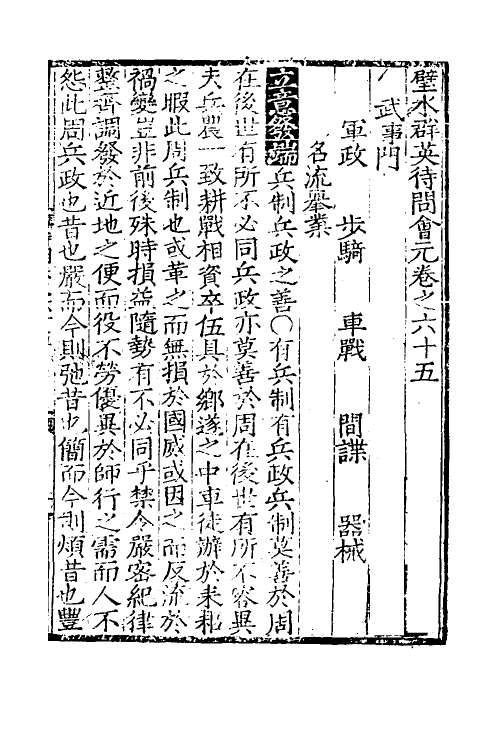 璧水群英待問會元卷之六十五
武事門
軍政　步騎　車戰　間諜　器械
名流舉業
立意發端兵制兵政之善〇有兵制有兵政兵制莫善於周
在後世有所不必同兵政亦莫善於周在後世有所不容異
夫兵農一致耕戰相資卒伍具於鄉遂之中車徒辦於耒耜
之暇此周兵制也或革之而無損於國威或因之而反流於
禍變豈非前後殊時損益隨勢有不必同乎禁令嚴密紀律
整齊調發於近地之便而役不勞優異於師行之需而人不
怨此周兵政也昔也嚴而今則弛昔也簡而今則煩昔也豐